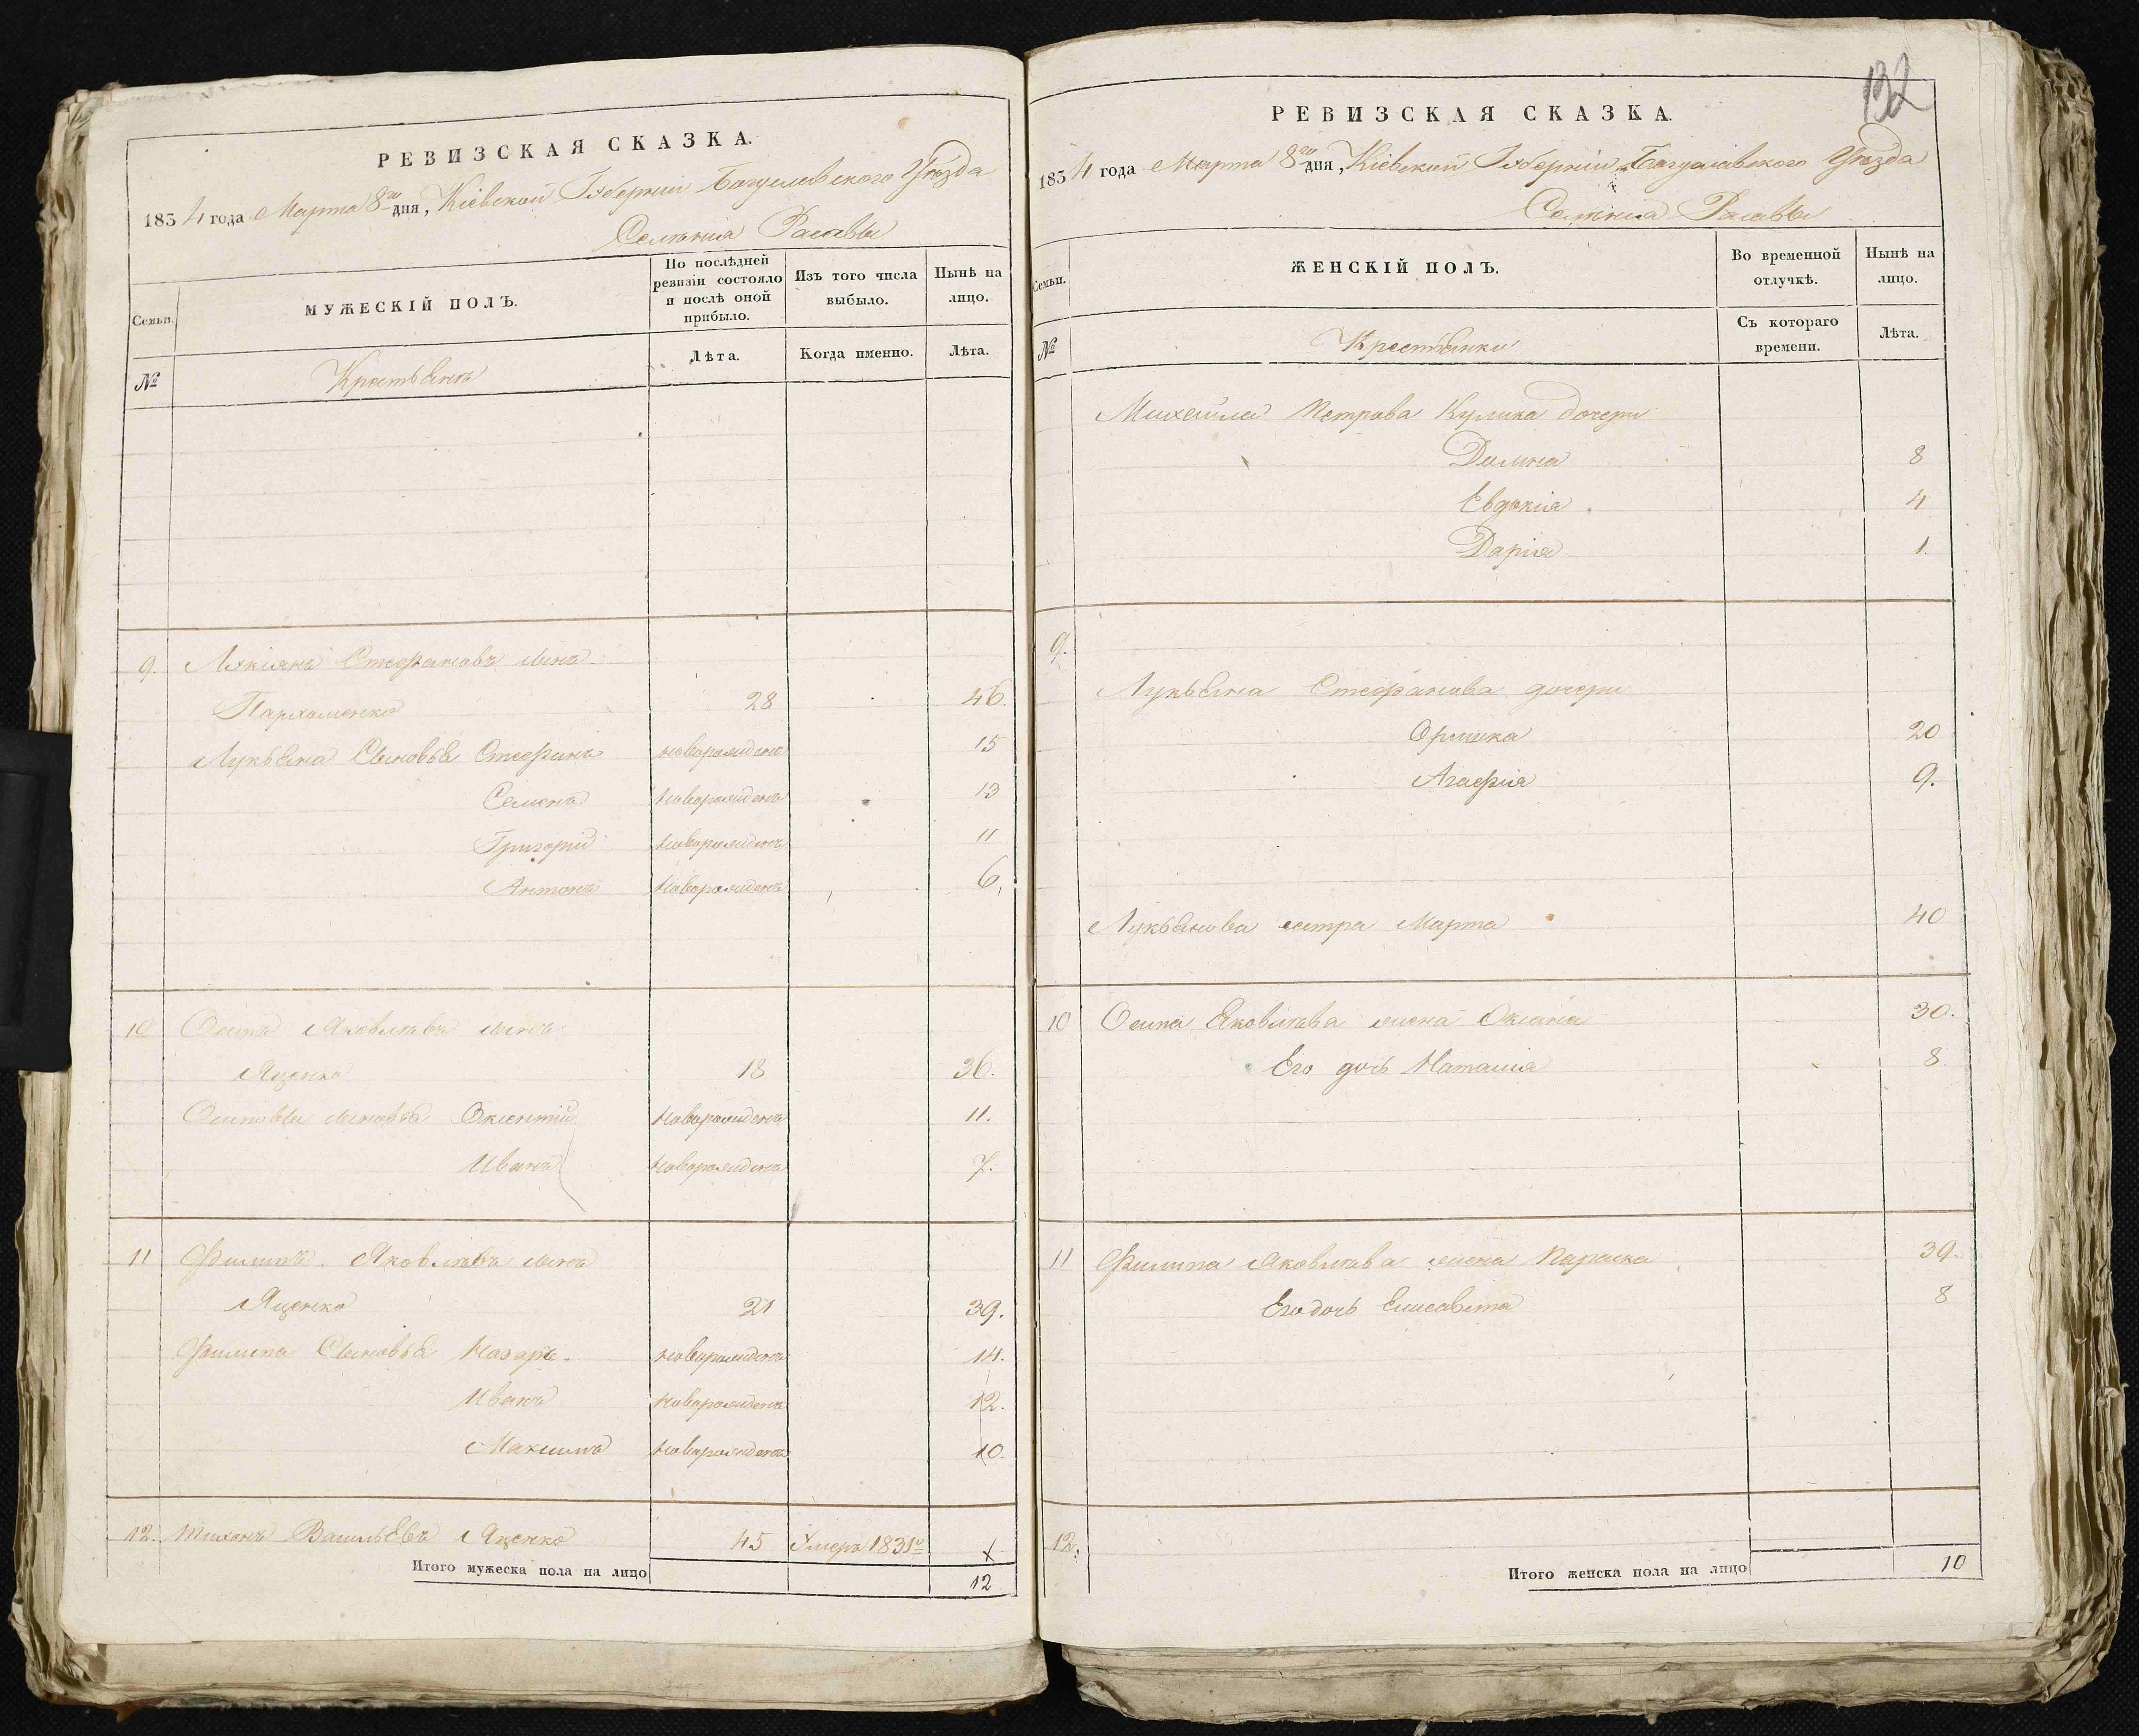 РЕВИЗСКАЯ СКАЗКА.
1834 года Марта 8го дня, Кіевской Губерніи Богуславского Уѣзда
Селенія Расавы
Семьи.
МУЖЕСКІЙ ПОЛЪ.
По послѣдней ревизіи состояло и послѣ оной прибыло.
Изъ того числа выбыло.
Нынѣ на лицо.
№
Крестьянъ
Лѣта.
Когда именно.
Лѣта.
9. Лукіянъ Стефановъ сынъ
Пархоменко 28 46.
Лукьяна Сыновья Стефанъ новорожденъ 15
Семенъ новорожденъ 13
Григорій новорожденъ 11
Антонъ новорожденъ 6.
10 Осипъ Яковлевъ сынъ
Яценко 18 36.
Осиповы сыновья Оксентій новорожденъ 11.
Иванъ новорожденъ 7.
11 Филипъ Яковлевъ сынъ
Яценко 21 39.
Филипа Сыновья Назаръ новорожденъ 14.
Иванъ новорожденъ 12.
Максимъ новорожденъ 10.
12. Тихонъ Васильевъ Яценко 45 Умеръ 1831го x
Итого мужеска пола на лицо 12
132
РЕВИЗСКАЯ СКАЗКА.
1834 года Марта 8го дня, Кіевской Губерніи Богуславского Уѣзда
Селенія Расавы
Семьи.
ЖЕНСКІЙ ПОЛЪ.
Во временной отлучкѣ.
Нынѣ на лицо.
№
Крестьянки
Съ котораго времени.
Лѣта.
Михайла Петрова Кулика дочери
Домна 8
Евдокія 4
Дарія 1.
9.
Лукьяна Стефанова дочери
Оришка 20
Агафія 9.
Лукьянова сестра Марта 40
10 Осипа Яковлева жена Оксана 30.
Его дочь Наталія 8.
11 Филипа Яковлева жена Параска 39.
Его дочь Елисавета 8
12.
Итого женска пола на лицо 10